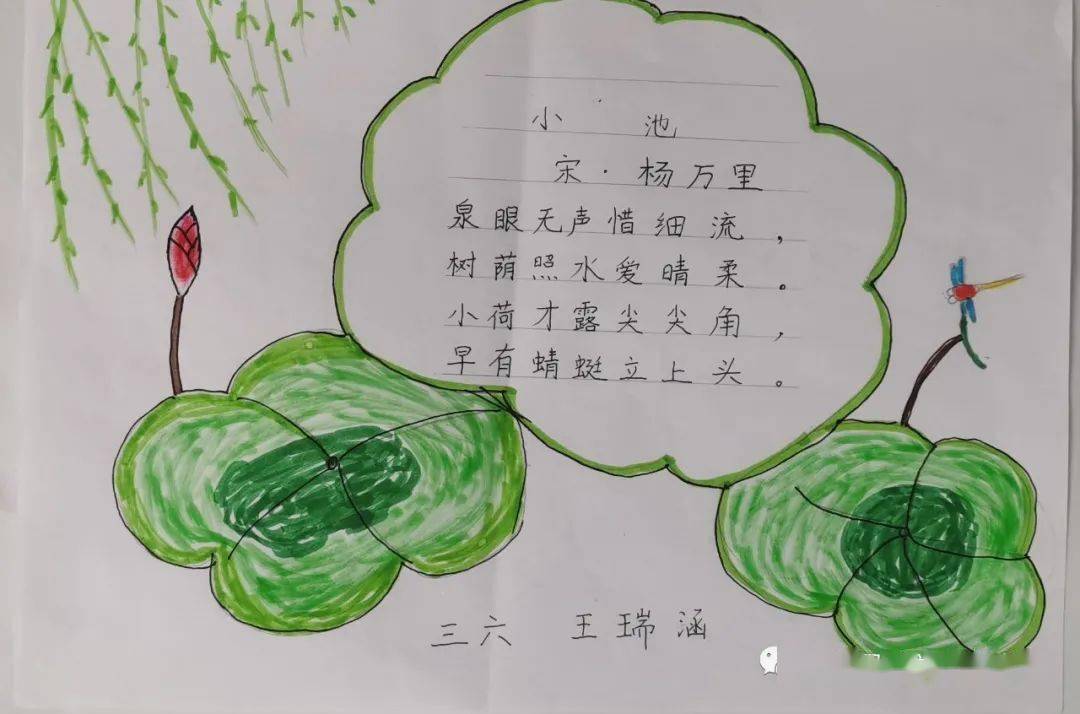 小 池
宋·杨万里
泉眼无声惜细流，
树荫照水爱晴柔。
小荷才露尖尖角，
早有蜻蜓立上头。
三六 王瑞涵